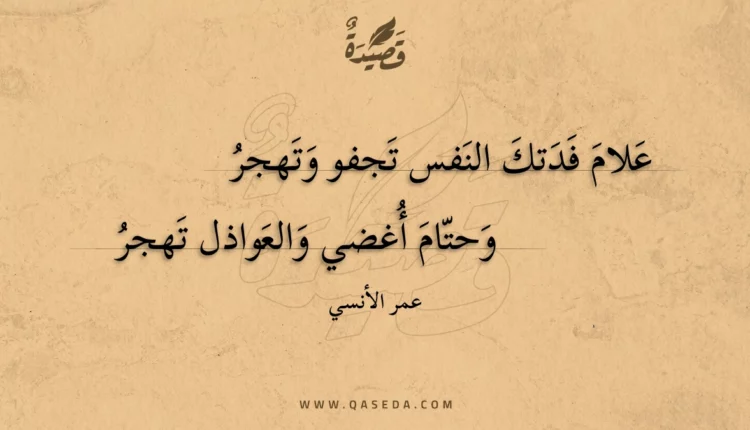 قَصِيدَةٌ
عَلامَ فَدَتكَ النَفس تَجفو وَتَهجرُ
وَحتّامَ أُغضي وَالعَواذل تَهجرُ
عمر الأنسي
WWW.QASEDA.COM